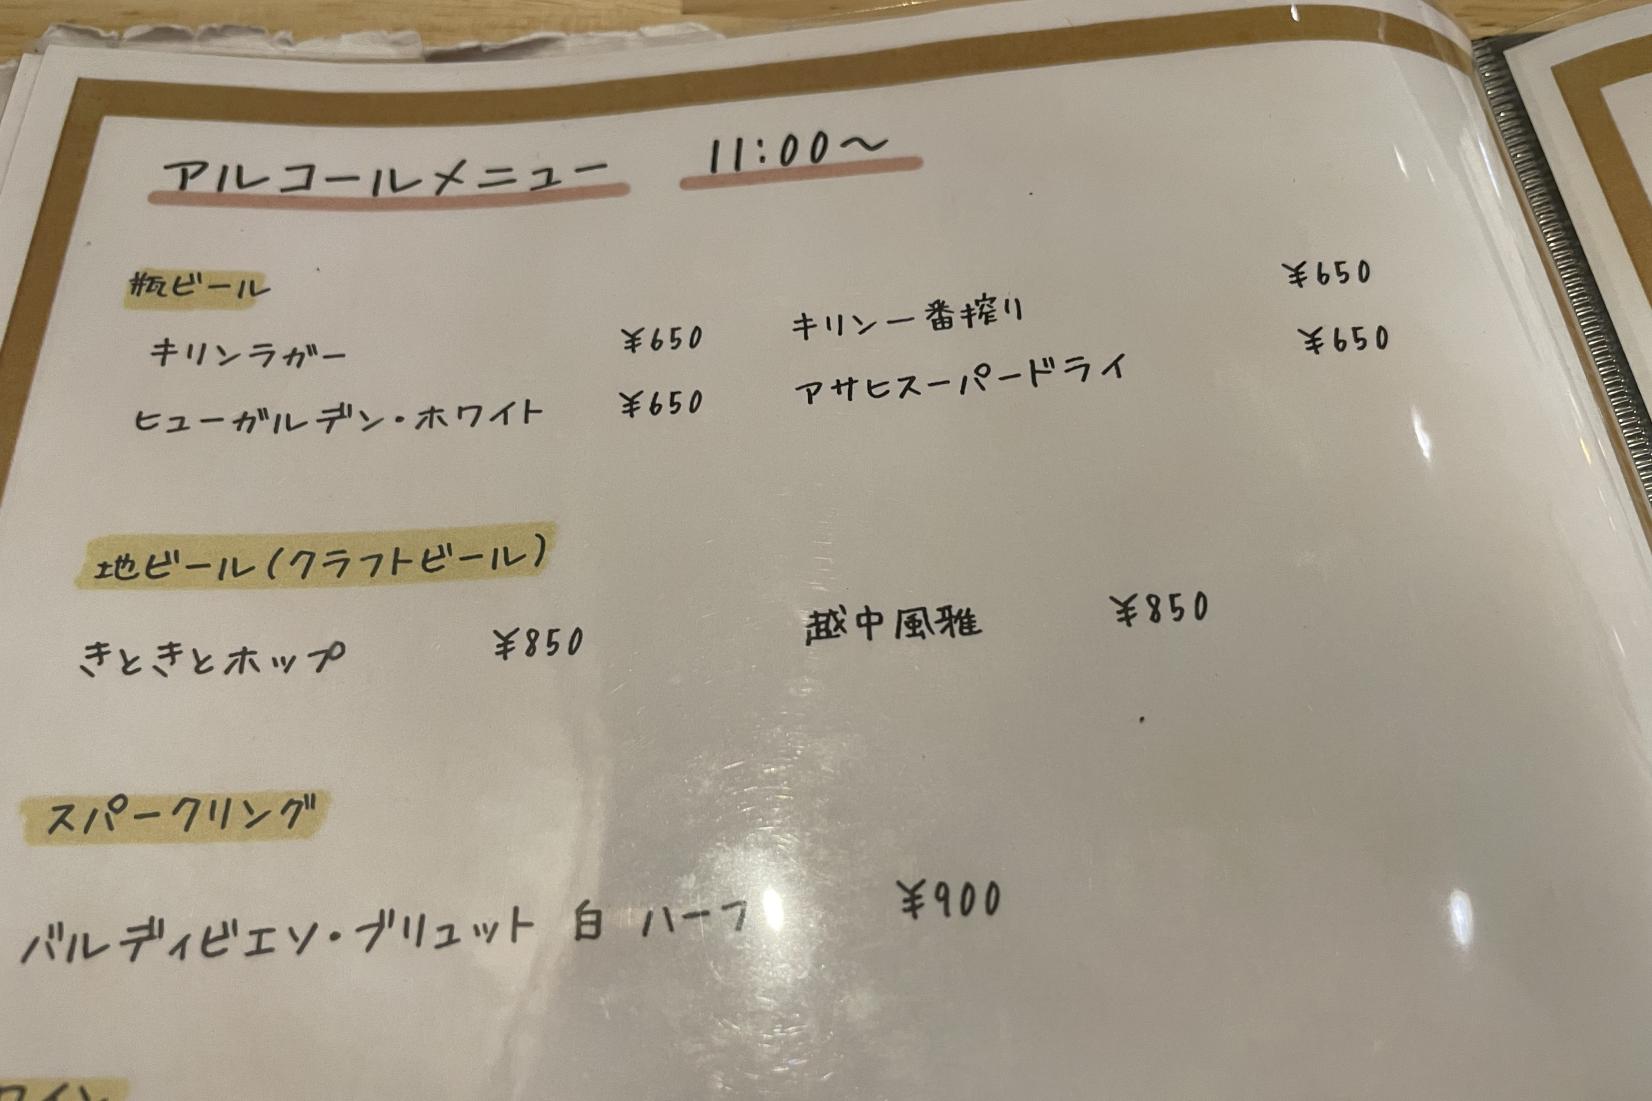 アルコールメニュー 11:00〜
瓶ビール
キリンラガー ¥650 キリン一番搾り ¥650
ヒューガルデン・ホワイト ¥650 アサヒスーパードライ ¥650
地ビール(クラフトビール)
きときとホップ ¥850 越中風雅 ¥850
スパークリング
バルディビエソ・ブリュット 白 ハーフ ¥900
ワイン